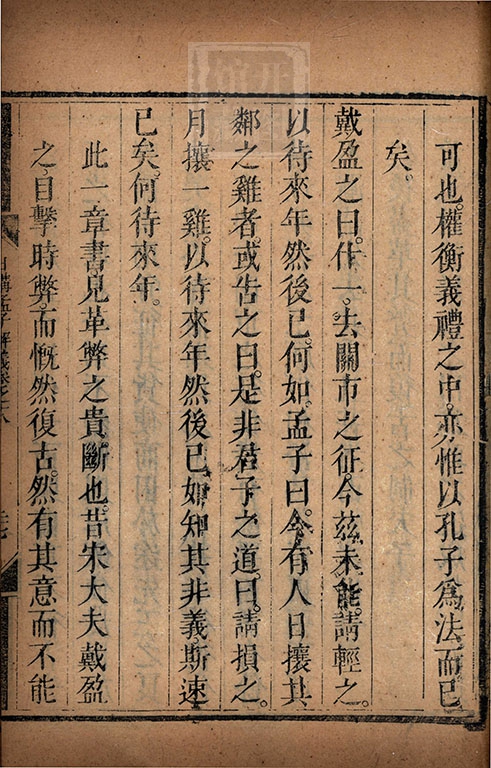 可也。權衡義禮之中。亦惟以孔子爲法而已
矣。
戴盈之曰。什一。去關市之征。今兹未能。請輕之。
以待來年然後已。何如。孟子曰。今有人日攘其
鄰之雞者。或告之曰。是非君子之道。曰。請損之。
月攘一雞。以待來年然後已。如知其非義。斯速
已矣。何待來年。
此一章書。見革弊之貴斷也。昔宋大夫戴盈
之。目擊時弊。而慨然復古。然有其意而不能
日講 孟子解義卷之十八